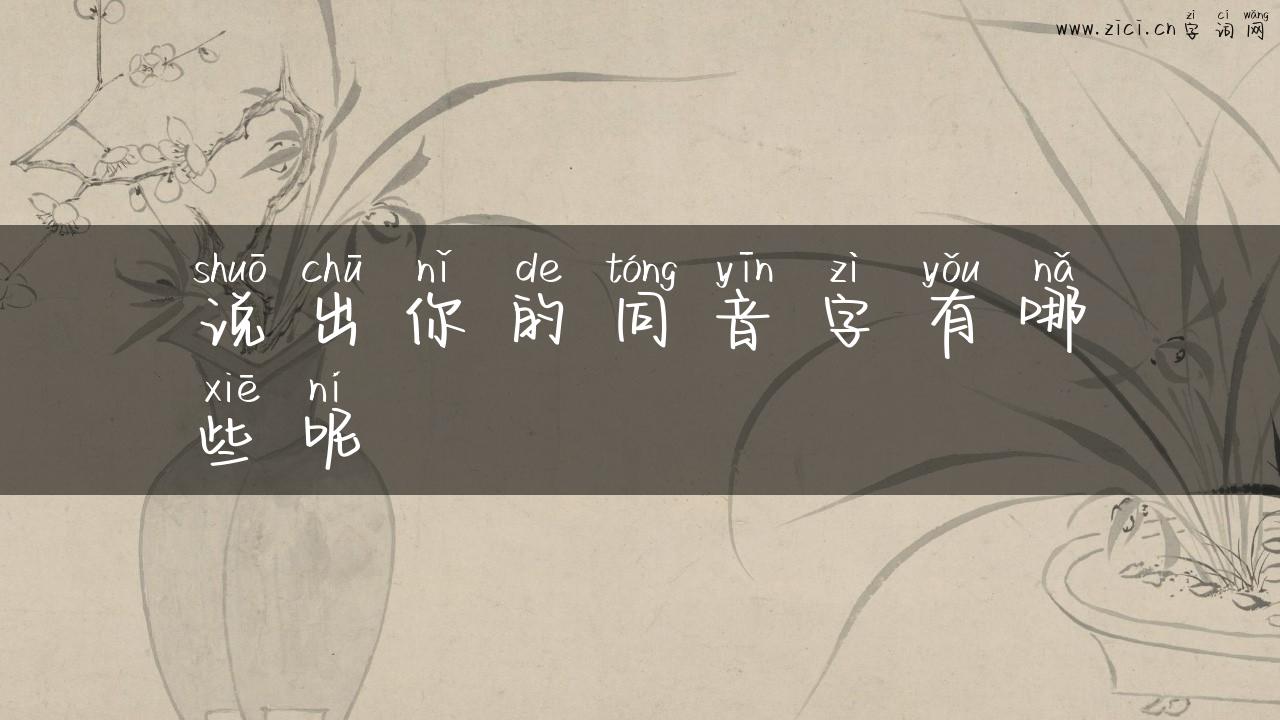 zì cí wǎng
www.zici.cn 字词网
shuō chū nǐ de tóng yīn zì yǒu nǎ
说出你的同音字有哪
xiē ní
些呢